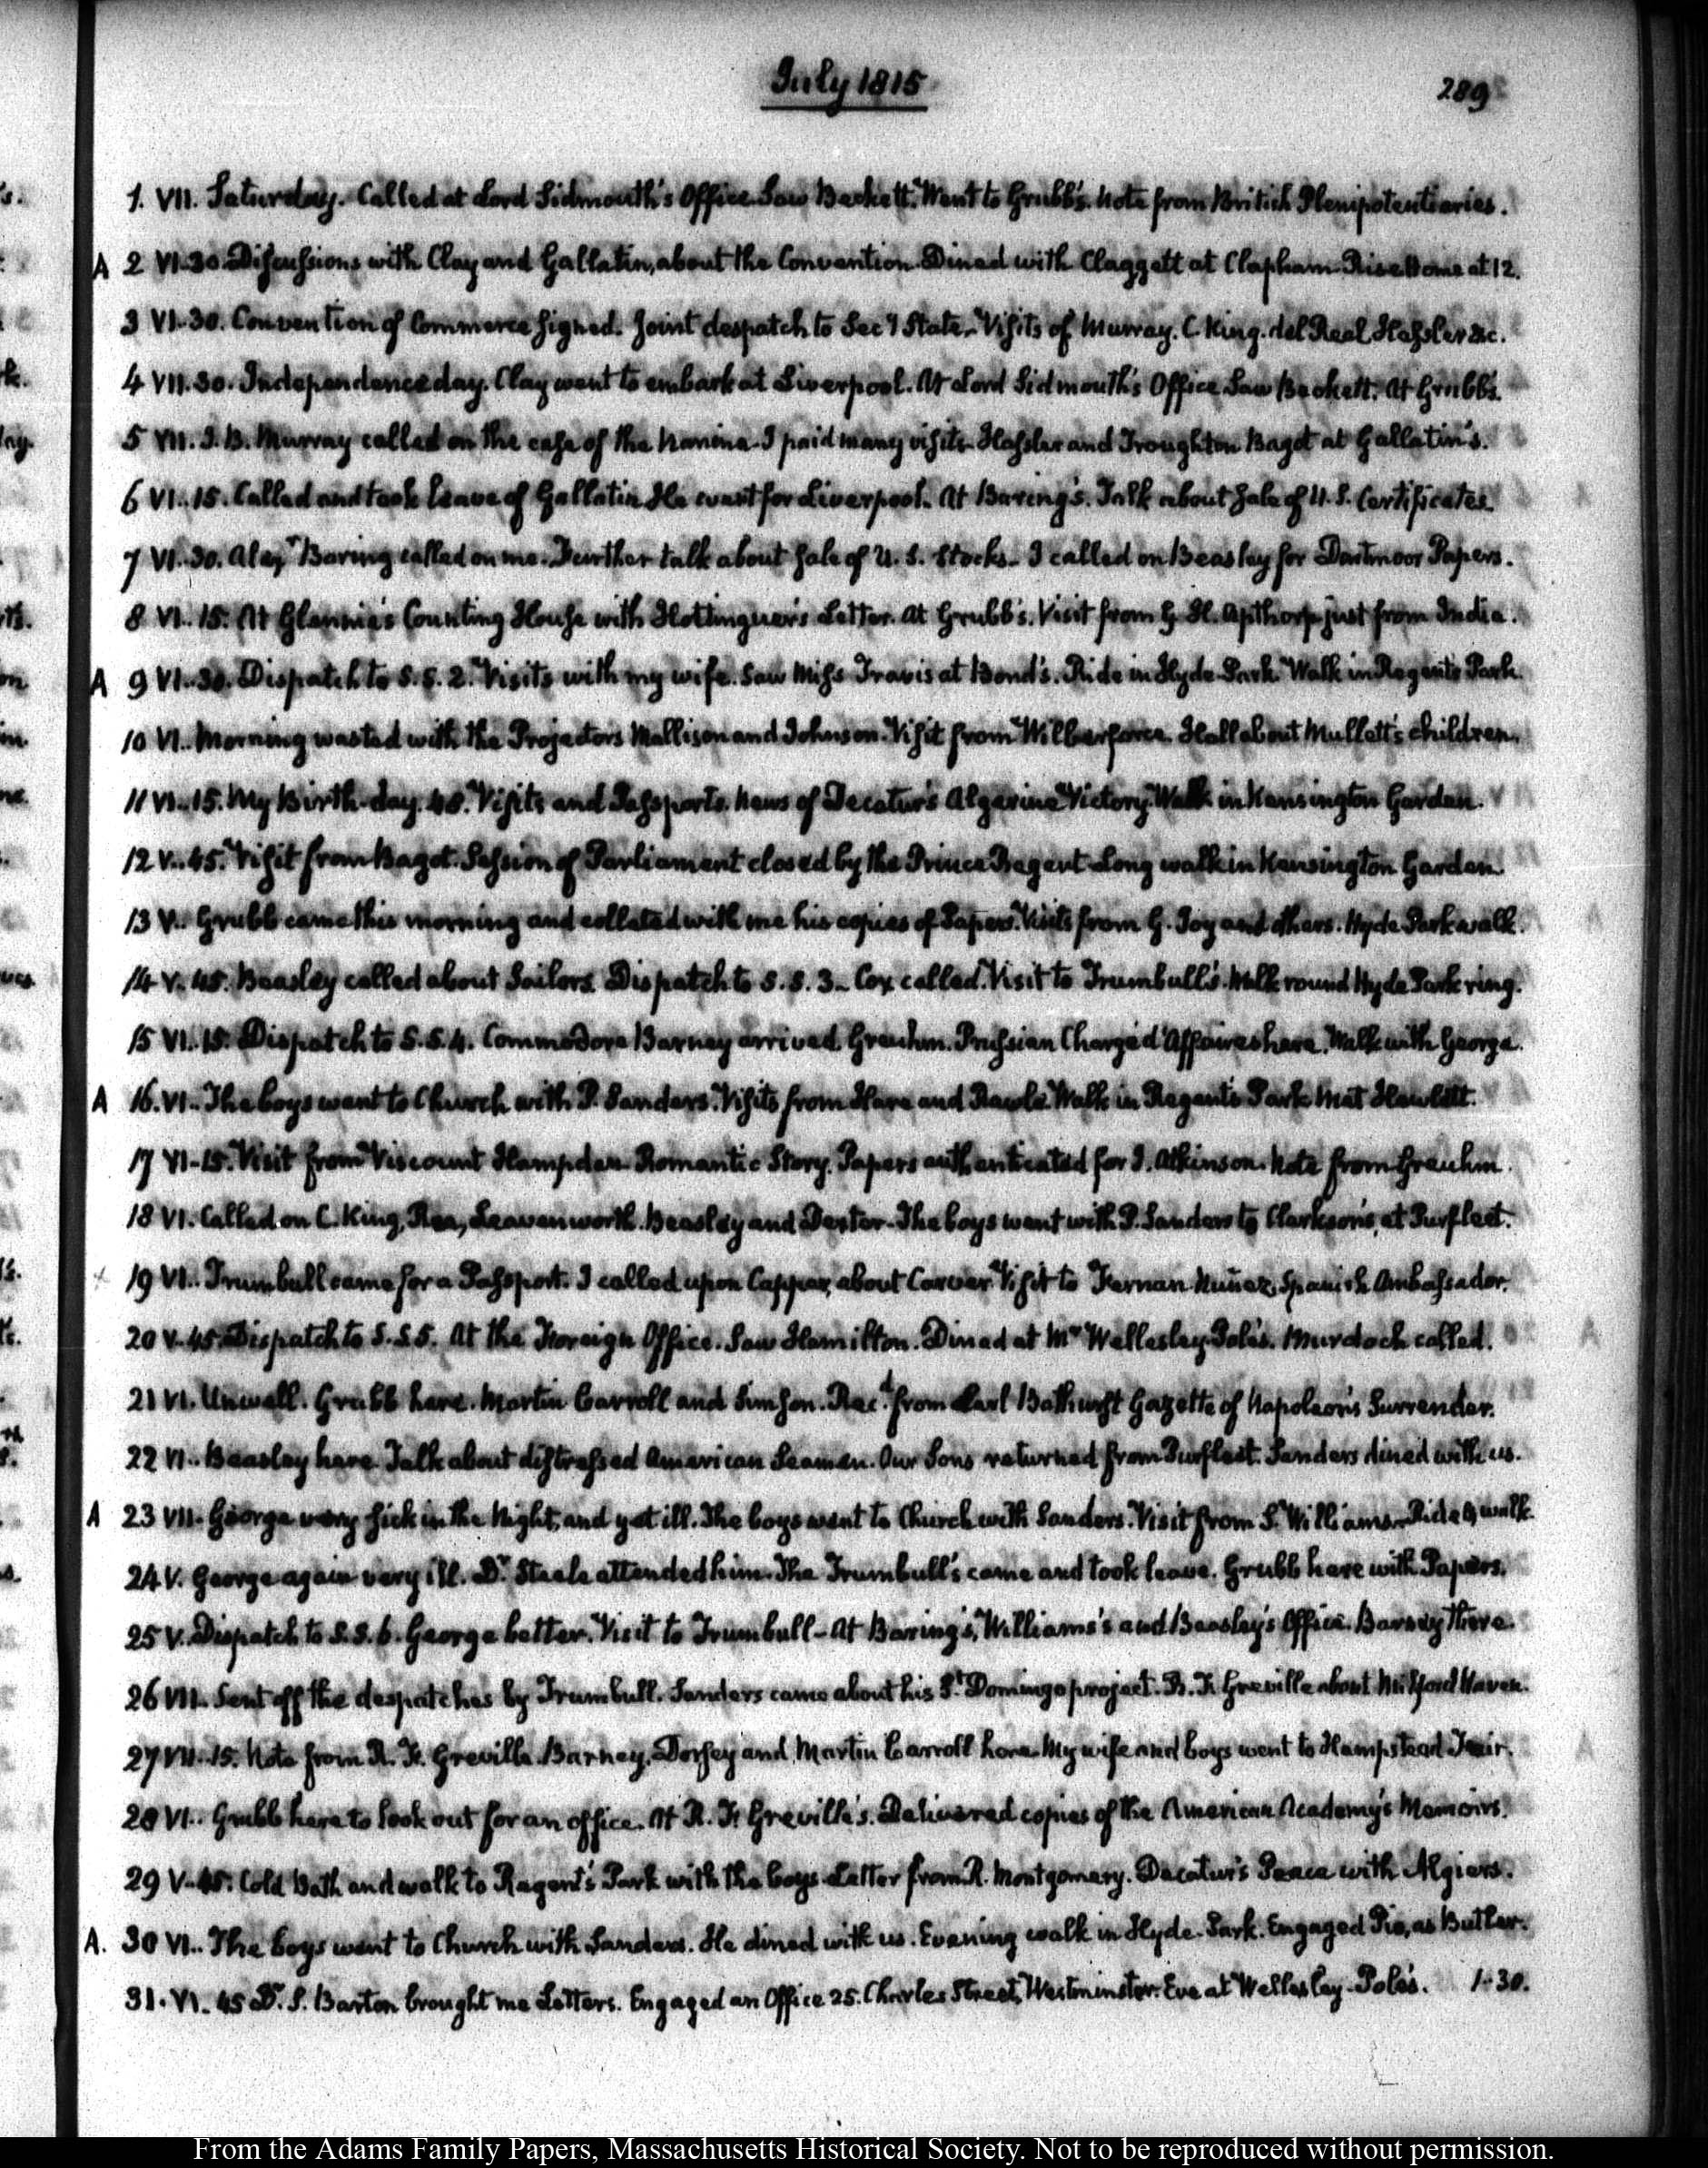 July 1815
289
1. VII. Saturday. Called at Lord Sidmouth's Office. Saw Beckett. Went to Grubb's. Note from British Plenipotentiaries.
A 2 VI.30. Discussions with Clay and Gallatin, about the Convention. Dined with Claggett at Clapham-Rise. Home at 12.
3 VI.30. Convention of Commerce signed. Joint despatch to Secy State. Visits of Murray. C. King. del Real. Hassler &c.
4 VII.30. Independence day. Clay went to embark at Liverpool. At Lord Sidmouth's Office Saw Beckett. At Grubb's.
5 VII. J. B. Murray called on the case of the Nanina. I paid many visits. Hassler and Troughton. Bagot at Gallatin's.
6 VI..15. Called and took leave of Gallatin. He went for Liverpool. At Baring's. Talk about Sale of U.S. Certificates.
7 VI..30. Alexr. Baring called on me. Further talk about sale of U. S. Stocks. I called on Beasley for Dartmoor Papers.
8 VI..15. At Glennie's Counting House with Hottinguer's Letter. At Grubb's. Visit from G. H. Apthorp just from India.
A 9 VI..30. Dispatch to S.S. 2. Visits with my wife. Saw Miss Travis at Bond's. Ride in Hyde-Park. Walk in Regents Park.
10 VI.. Morning wasted with the Projectors Mallison and Johnson. Visit from Wilberforce. Hall about Mullett's children.
11 VI..15. My Birth-day. 48. Visits and Passports. News of Decatur's Algerine Victory. Walk in Kensington Garden.
12 V..45. Visit from Bagot. Session of Parliament closed by the Prince Regent. Long walk in Kensington Garden.
13 V.. Grubb came this morning and collated with me his copies of Papers. Visits from G. Joy and others. Hyde Park walk.
14 V. 45. Beasley called about Sailors. Dispatch to S. S. 3. Cox called. Visit to Trumbull's. Walk round Hyde Park ring.
15 VI..15. Dispatch to S. S. 4. Commodore Barney arrived. Greuhm. Prussian Chargé d'Affaires here. Walk with George.
A 16. VI.. The boys went to Church with P. Sanders. Visits from Hare and Rawle. Walk in Regents Park. Met Hewlett.
17 VI-15. Visit from Viscount Hampden. Romantic Story. Papers authenticated for J. Atkinson. Note from Greuhm.
18 VI. Called on C. King, Rea, Leavenworth. Beasley and Dexter. The boys went with P. Sanders to Clarkson's, at Purfleet.
19 VI.. Trumbull came for a Passport. I called upon Capper, about Carver. Visit to Fernan-Nuñez, Spanish Ambassador.
20 V.45 Dispatch to S. S. 5. At the Foreign Office. Saw Hamilton. Dined at Mr. Wellesley-Pole's. Murdoch called.
21 VI. Unwell. Grubb here. Martin Carroll and Simson. Recd. from Earl Bathurst Gazette of Napoleon's Surrender.
22 VI.. Beasley here. Talk about distressed American Seamen. Our Sons returned from Purfleet. Sanders dined with us.
A 23 VII. George very sick in the Night, and yet ill. The boys went to Church with Sanders. Visit from S. Williams. Ride & walk.
24 V. George again very ill. Dr. Steele attended him. The Trumbull's came and took leave. Grubb here with Papers.
25 V. Dispatch to S. S. 6. George better. Visit to Trumbull- At Baring's, Williams's and Beasley's Office. Barney there.
26 VII.. Sent off the despatches by Trumbull. Sanders came about his St. Domingo project. R. F. Greville about Milford Haven.
27 VII..15. Note from R. F. Greville. Barney, Dorsey and Martin Carroll here. My wife and boys went to Hampstead Fair.
28 VI.. Grubb here to look out for an office. At R. F. Greville's. Delivered copies of the American Academy's Memoirs.
29 V.45. Cold Bath and walk to Regent's Park with the boys. Letter from R. Montgomery. Decatur's Peace with Algiers.
A. 30 VI.. The boys went to Church with Sanders. He dined with us. Evening walk in Hyde-Park. Engaged Pio, as Butler.
31. VI. 45 Dr. S. Barton brought me Letters. Engaged an Office 25. Charles Street, Westminster. Eve at Wellesley-Pole's. 1-30.
From the Adams Family Papers, Massachusetts Historical Society. Not to be reproduced without permission.